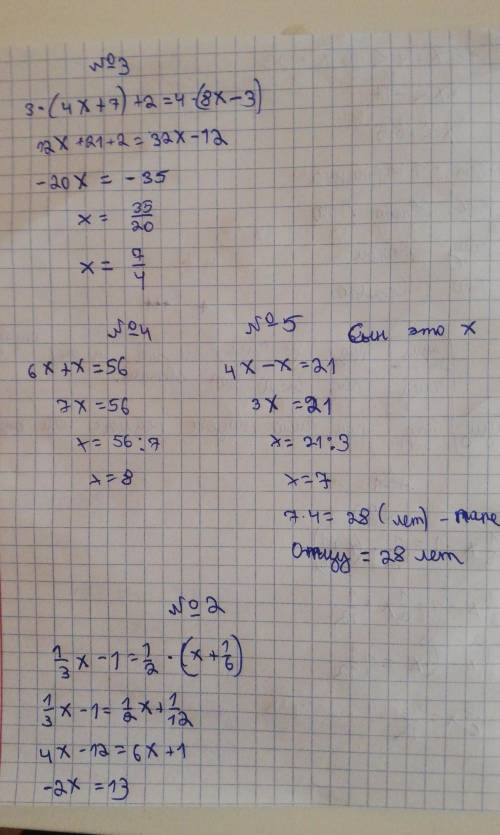 №3
3·(4x+7)+2=4·(8x-3)
12x+21+2=32x-12
-20x = -35
x= 35/20
x= 7/4
№4
6x+x=56
7x=56
x= 56:7
x=8
№5 Сын это x
4x-x=21
3x=21
x=21:3
x=7
7·4= 28 (лет) - папе
Отцу = 28 лет
№2
1/3x-1=1/2·(x+1/6)
1/3x-1=1/2x+1/12
4x-12=6x+1
-2x=13